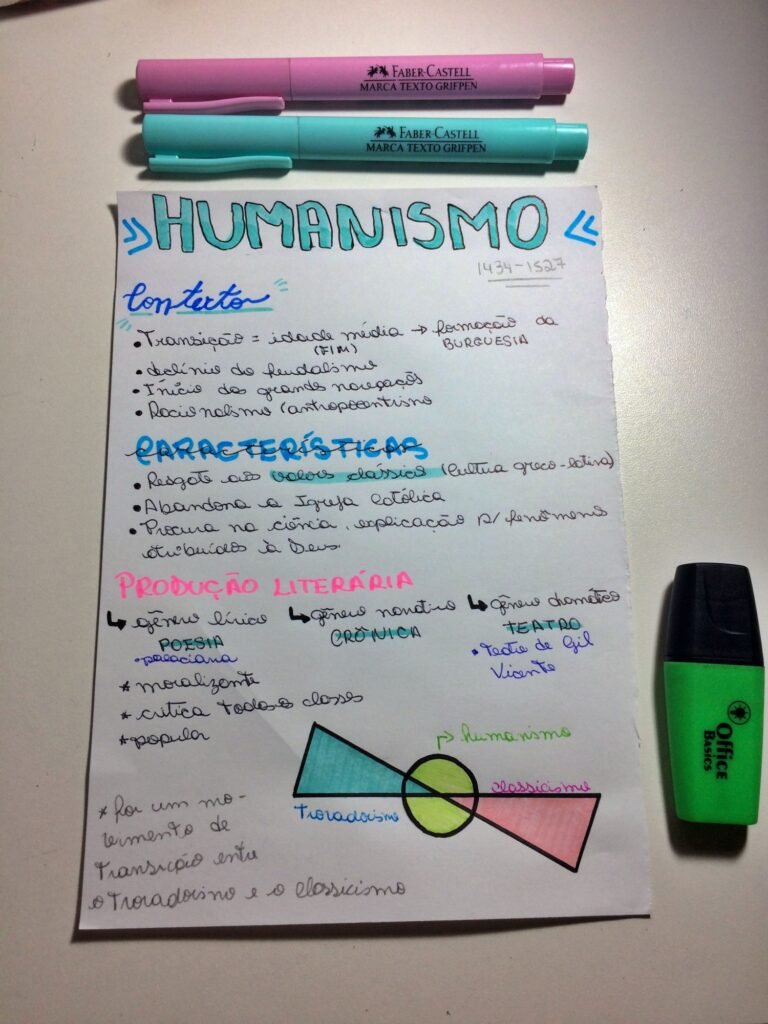 FABER-CASTELL
MARCA TEXTO GRIFPEN
FABER-CASTELL
MARCA TEXTO GRIFPEN
HUMANISMO
1434-1527
Contexto
• Transição = idade média → formação da
(FIM) BURGUESIA
• declínio do feudalismo
• Início das grandes navegações
• Racionalismo / antropocentrismo
CARACTERÍSTICAS
• Resgate aos valores clássico (Cultura greco-latina)
• Abandona a Igreja Católica
• Procura na ciência, explicação p/ fenômenos
atribuídos à Deus.
PRODUÇÃO LITERÁRIA
↳ gênero lírico ↳ gênero narrativo ↳ gênero dramático
POESIA CRÔNICA TEATRO
• palaciana • Teatro de Gil
Vicente
* moralizante
* critica todas as classes
* popular
↳ humanismo
classicismo
Trovadorismo
* foi um mo-
vimento de
transição entre
o Trovadorismo e o classicismo
Office
BASICS